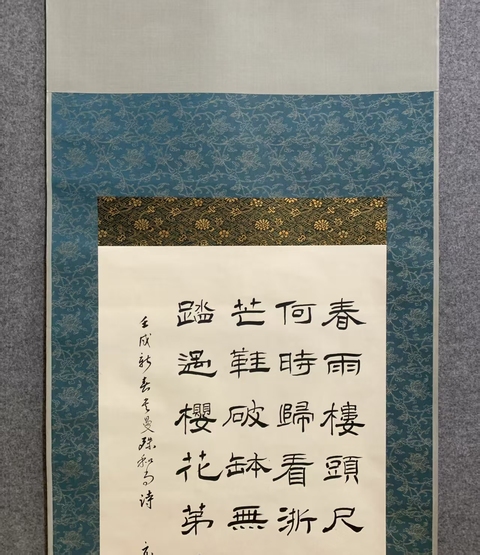 春雨樓頭尺
何時歸看浙
芒鞋破缽無
踏過櫻花第
壬戌新春書曼殊和尚詩